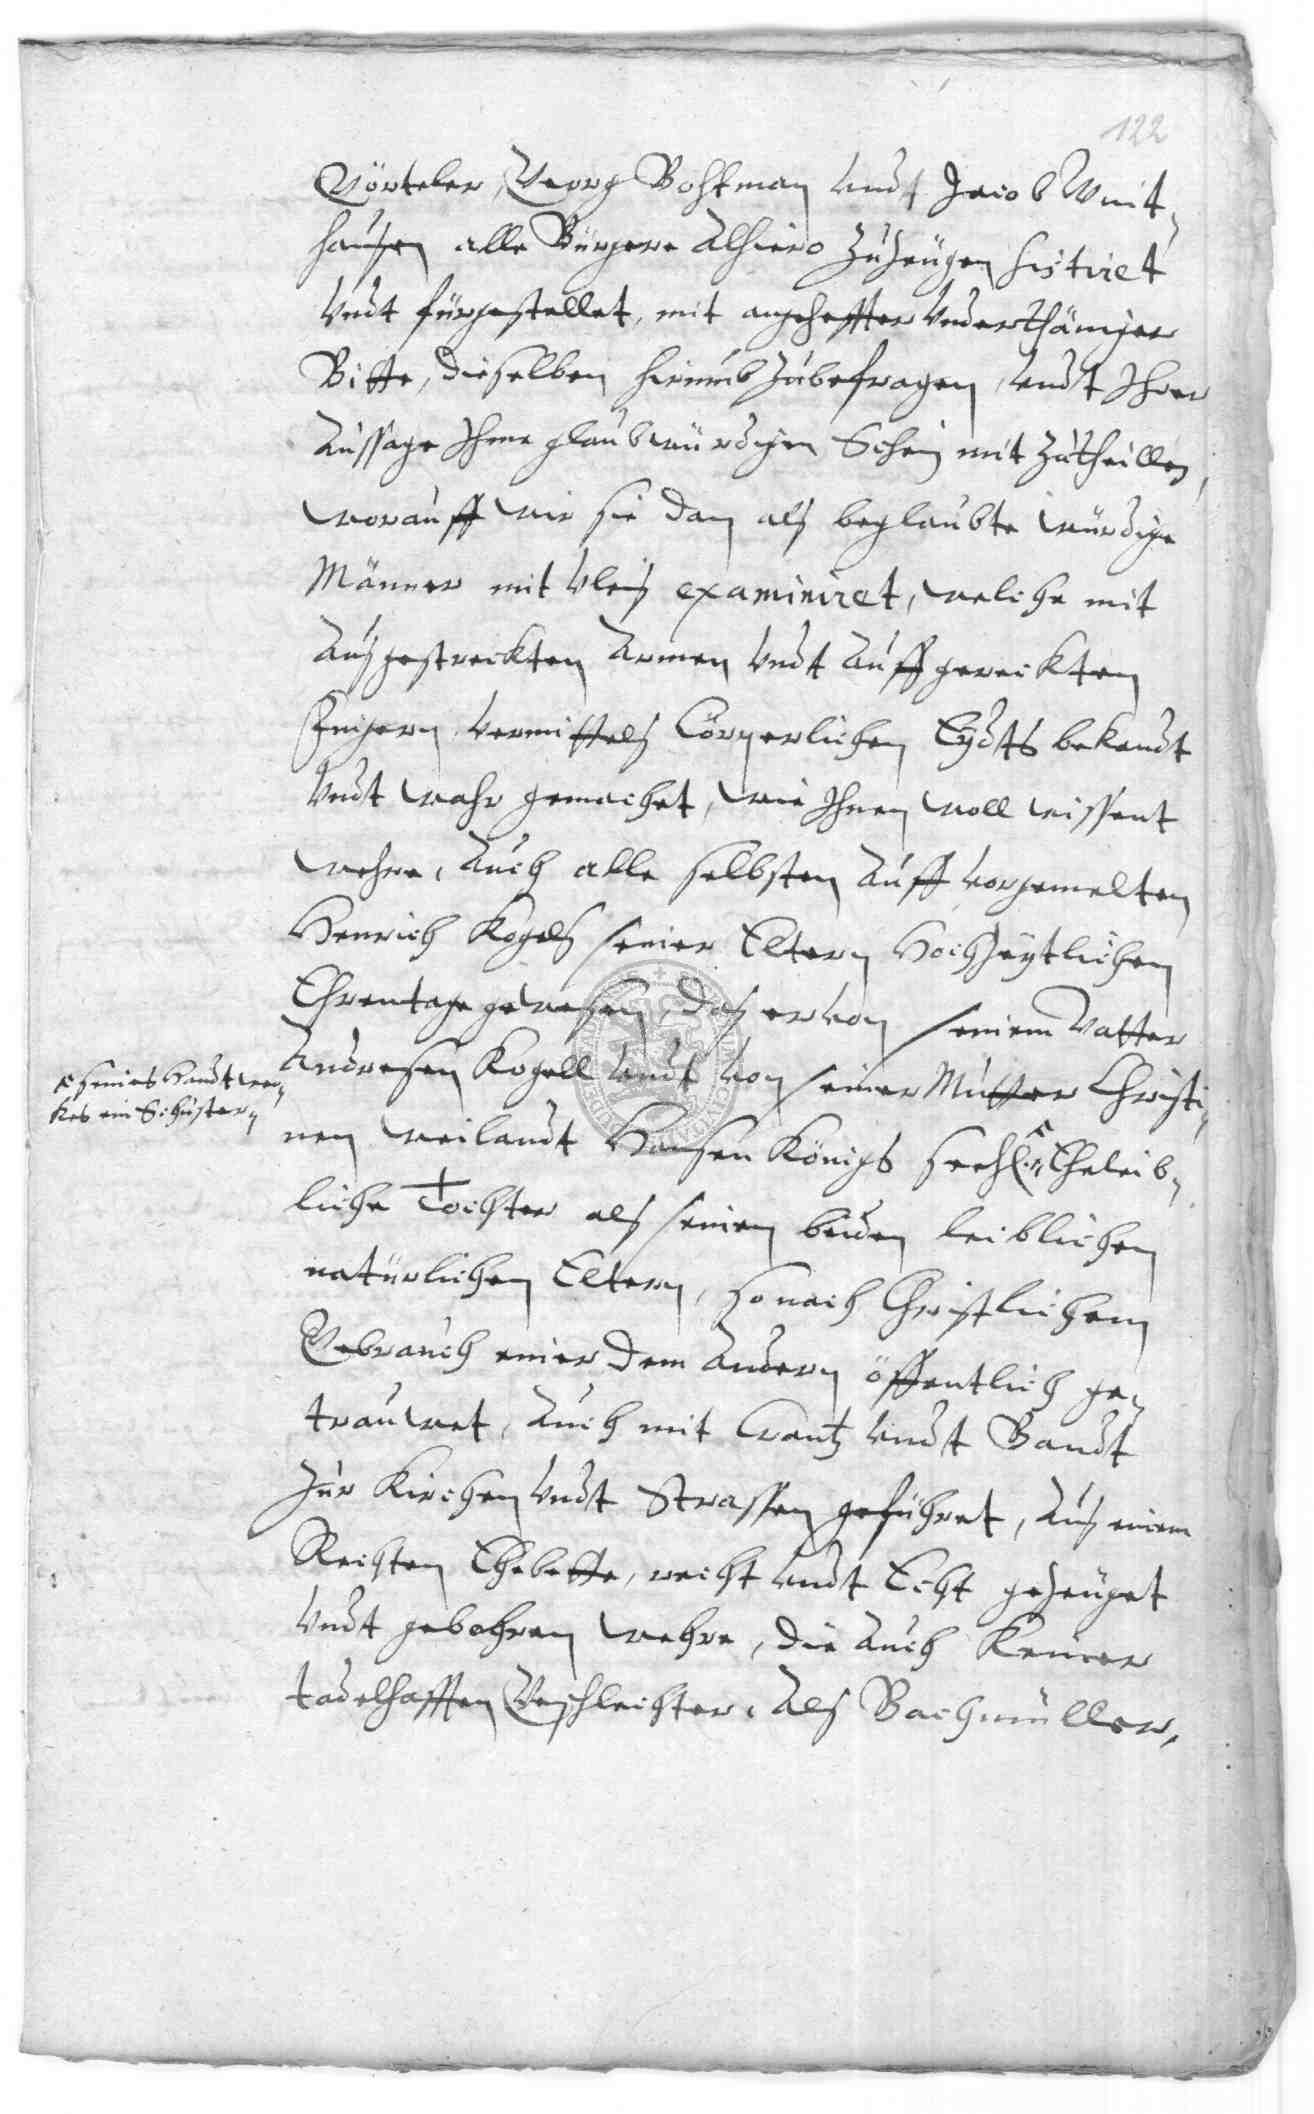 122
Vörteler, Georg Bohkman undt Jacob Wint„
hausen alle Bürgere Alhiero zu Zeügen sistiret
Undt fürgestellet, mit angeheffter Underthäniger
Bitte, dieselben hierumb zubefragen, undt Ihrer
Aussage Ihme glaubwürdigen Schein mit zutheillen,
worauff wir sie dan als beglaubte würdige
Männer mit Vleis examiniret, welche mit
Ausgestreckten Armen Undt Auffgereickten
Fingern vermittels Cörperlichen Eydts bekandt
Undt wahr gemachet, wie Ihnen woll wissent
wehre, Auch alle selbsten Auff vorgemelten
Henrich Kogels seiner Eltern Hochzeytlichen
Ehrentage gewesen, das er von seinem Vatter
Andresen Kogell undt von seiner Mutter Christi„
nen weilandt Hansen Königs seehl: Eheleib„
liche Tochter als seinen beiden leiblichen
natürlichen Eltern, so nach Christlichem
Gebrauch einer dem Andern öffentlich ge„
trauwet, Auch mit Crantz undt Bandt
Zur Kirchen Undt Strassen geführet, Aus einem
Rechten Ehebette, recht undt Echt gezeüget
Undt gebohren wehre, die Auch Keiner
tadelhafften Geschlechter, Als Bachmüller,
seines Handtwer„
kes ein Schuster„